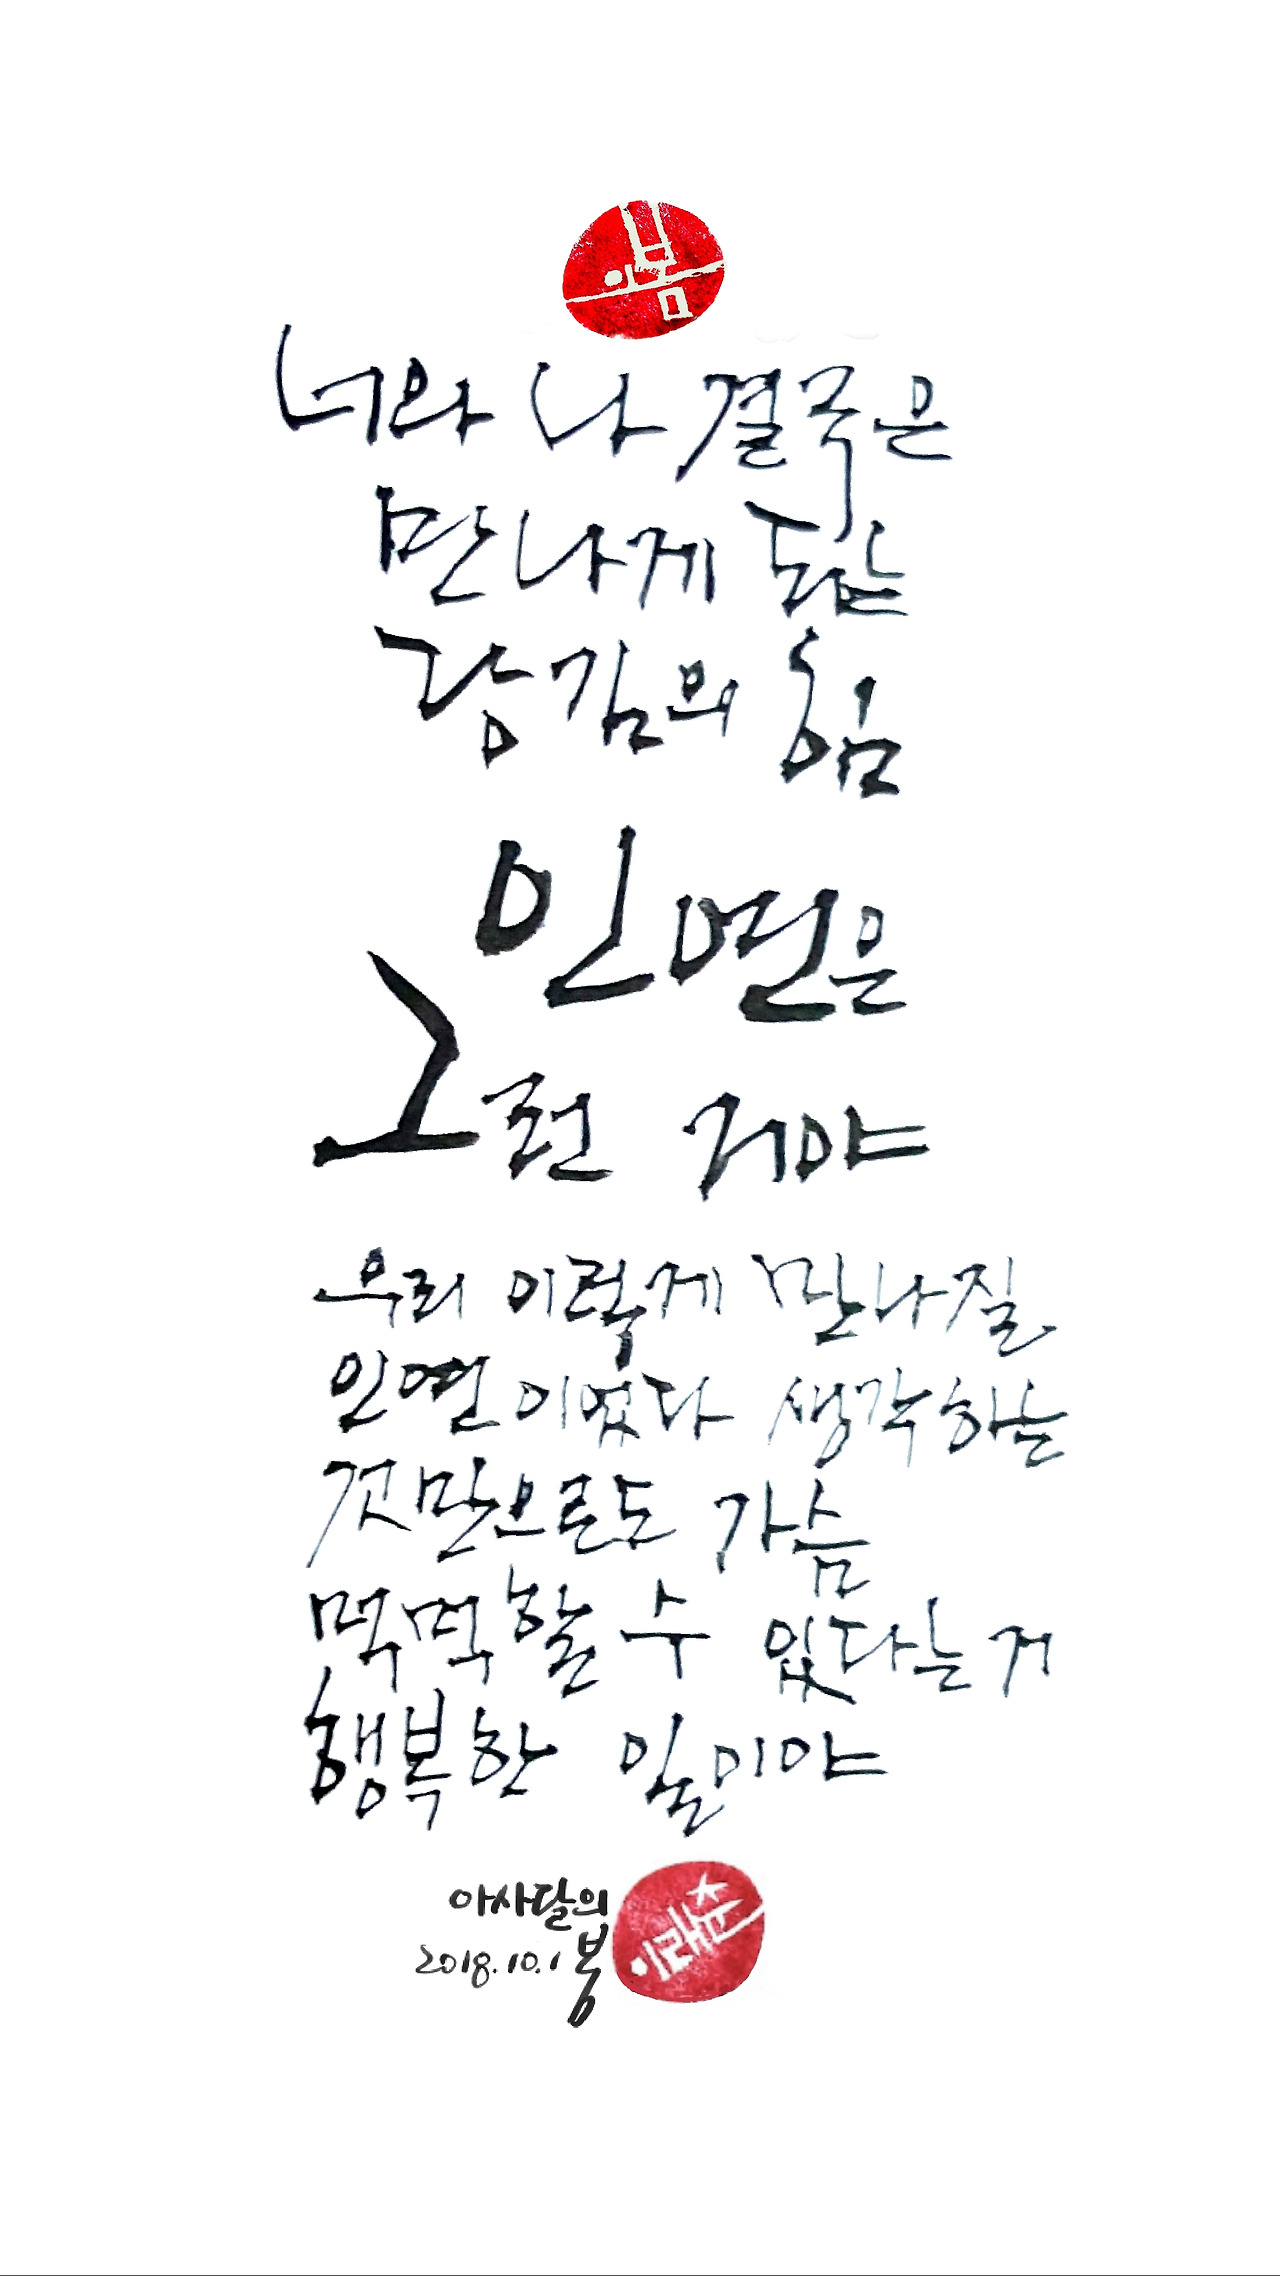 너와 나 결국은
만나게 되는
당김의 힘
인연은
그런 거야
우리 이렇게 만나질
인연이었다 생각하는
것만으로도 가슴
먹먹할 수 있다는 거
행복한 일이야
아사달의
2018.10.1 봄